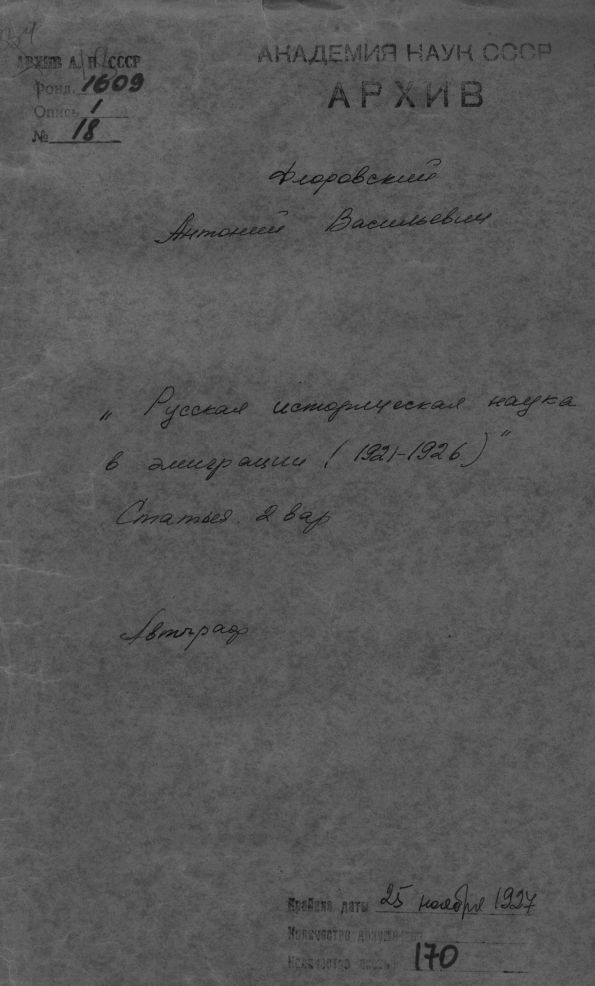 АРХИВ А. Н. СССР
Фонд. 1609
Опись 1
№ 18
АКАДЕМИЯ НАУК СССР
АРХИВ
Флоровский
Антоний Васильевич
„Русская историческая наука
в эмиграции (1921-1926)"
Статья. 2 вар
Автограф
Крайние даты 25 ноября 1927
Количество документов
Количество 170